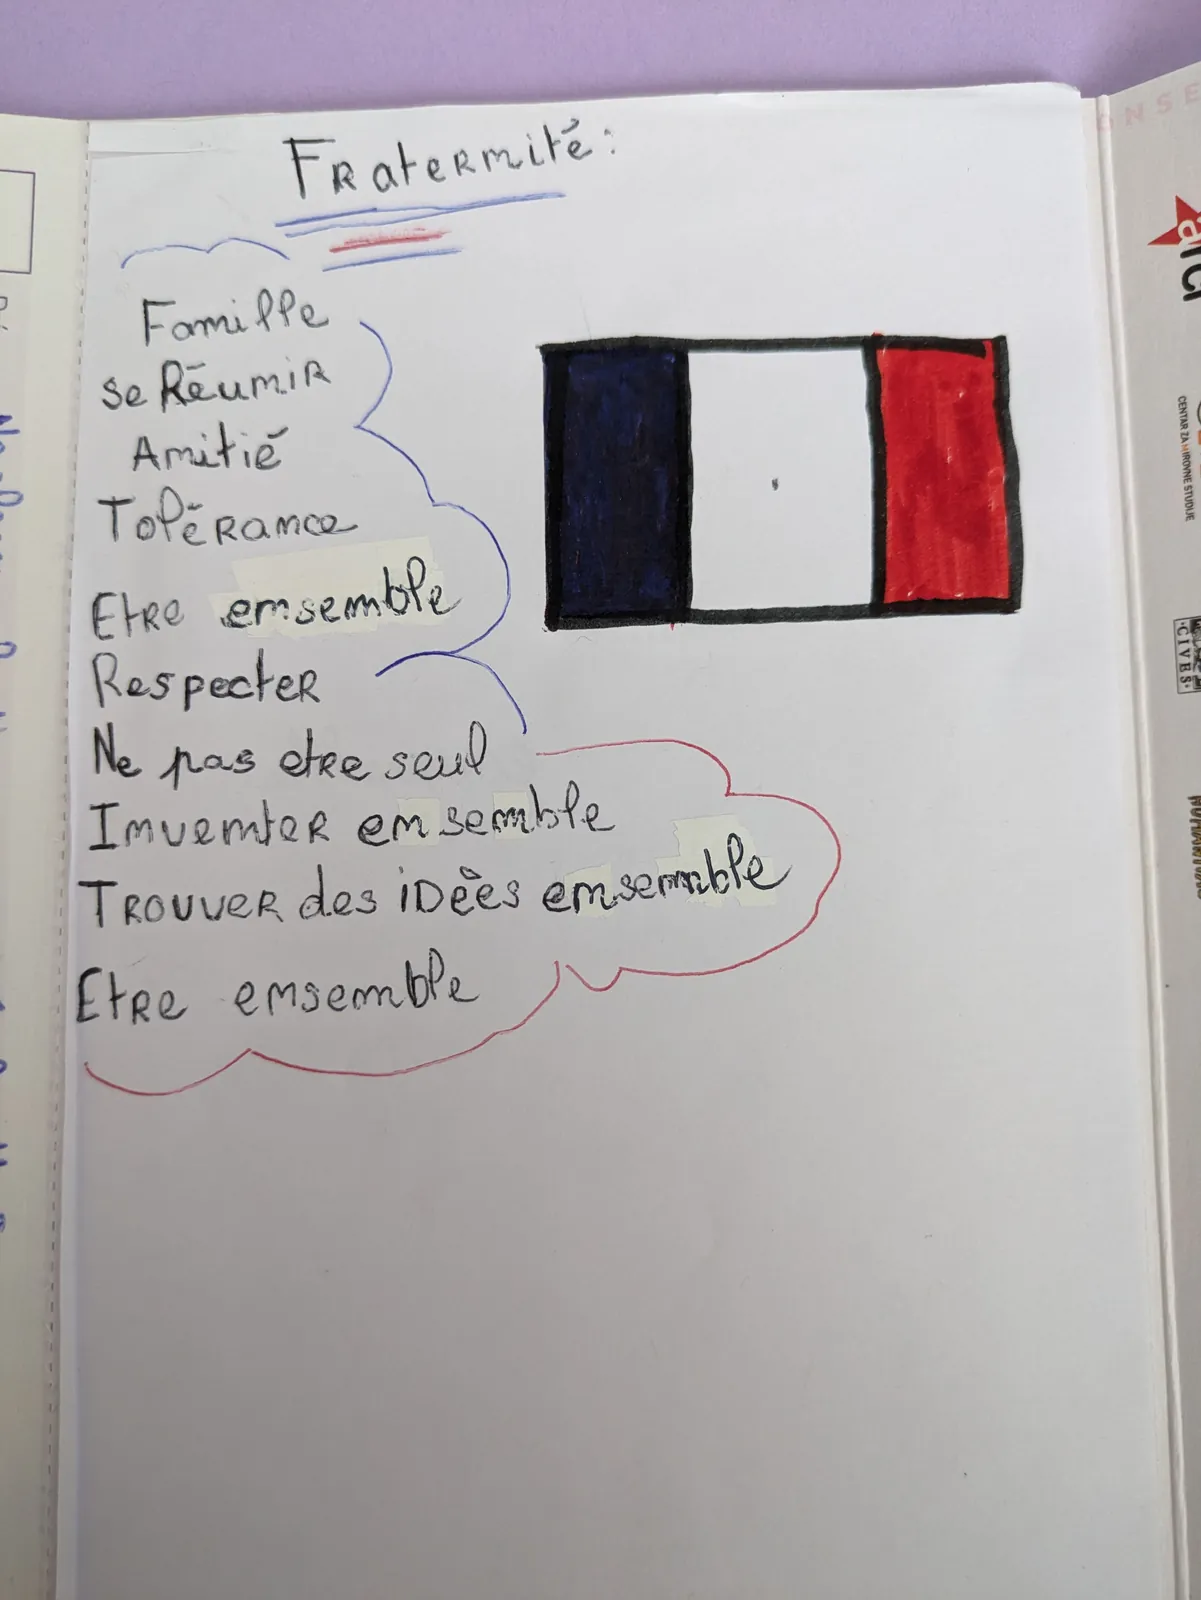 Fraternité :
Famille
se Réunir
Amitié
Tolérance
Etre ensemble
Respecter
Ne pas etre seul
Inventer ensemble
Trouver des idèes ensemble
Etre ensemble
ONSE
arci
CENTAR ZA MIROVNE STUDIJE
CIVES